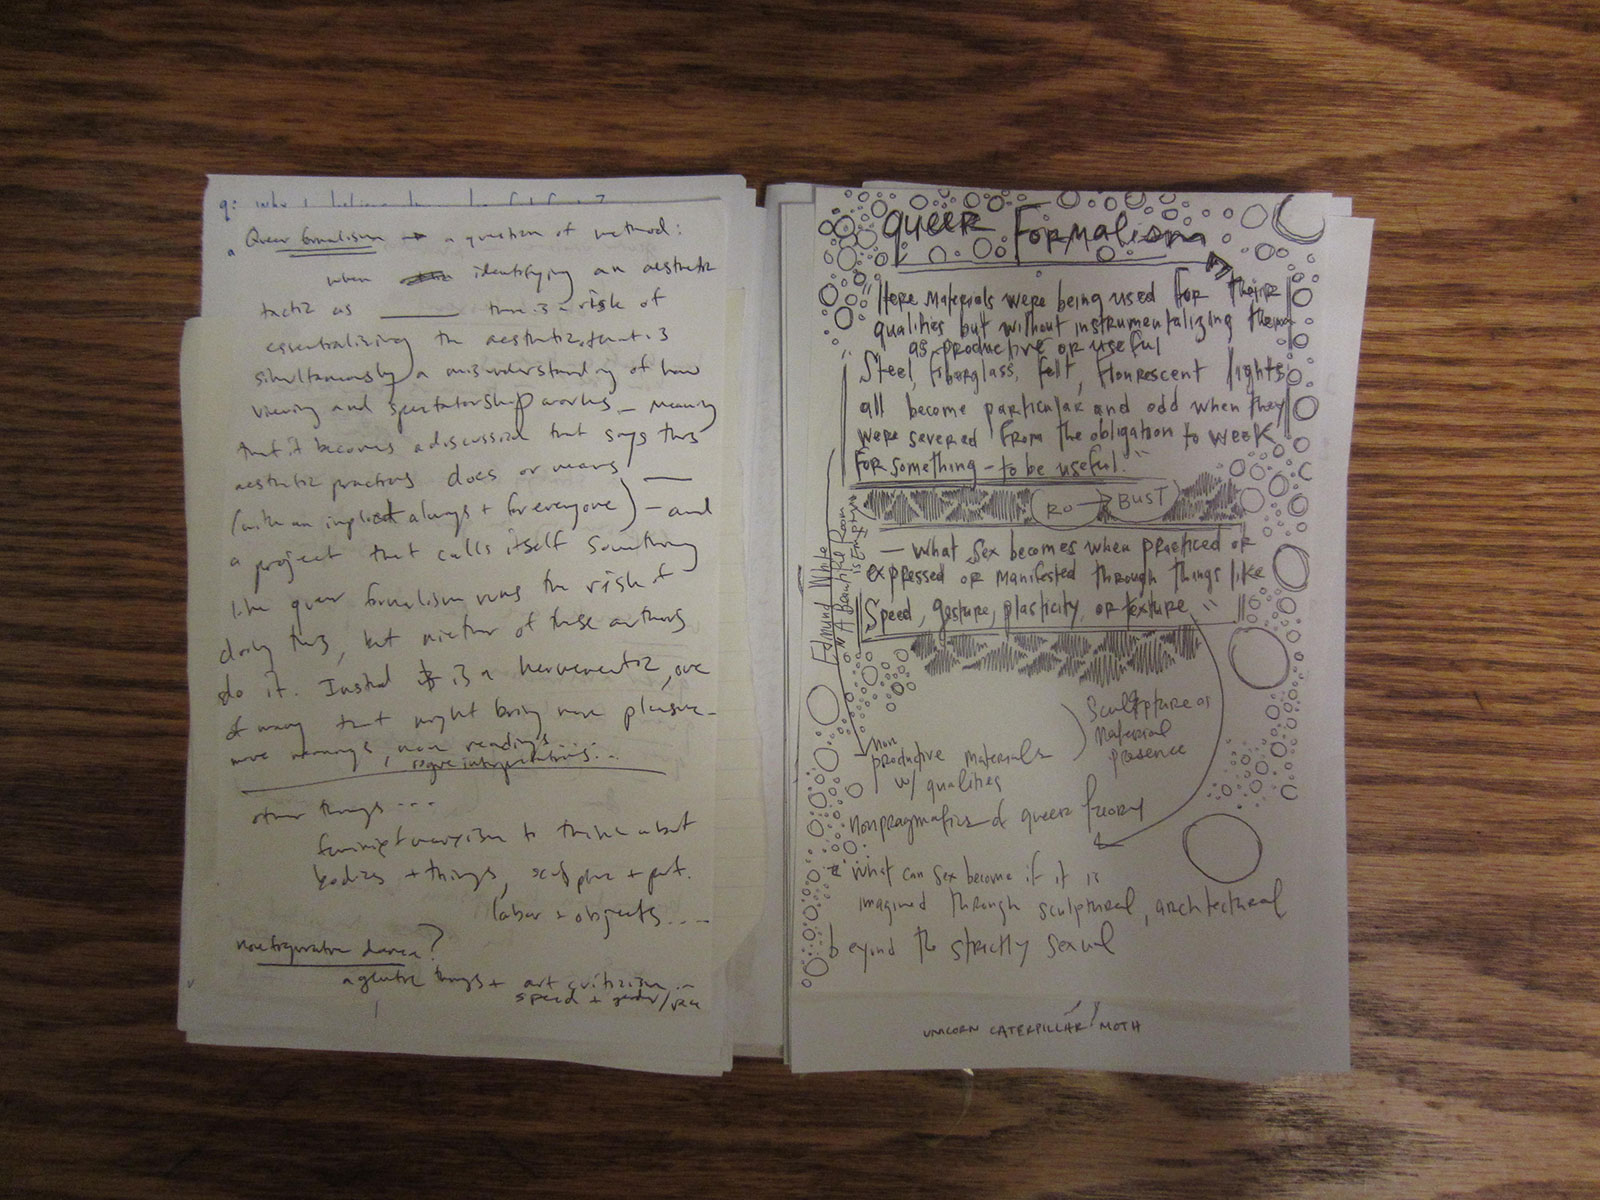 q: why I believe
Queer formalism → a question of method:
when identifying an aesthetic
tactic as ______ there is a risk of
essentializing the aesthetic, that is
simultaneously a misunderstanding of how
viewing and spectatorship works — meaning
that it becomes a discussion that says this
aesthetic practices does or means —
(with an implicit always + for everyone) — and
a project that calls itself something
like queer formalism runs the risk of
doing this, but neither of these authors
do it. Instead it is a hermeneutic, one
of many that might bring more pleasure —
more meanings, more readings...
rogue interpretations...
other things ...
feminist marxism to think about
bodies + things, sculpture + perf.
labor + objects ....
nonfigurative dance?
agentic things + art criticism —
speed + gender/race
Queer Formalism
"Here materials were being used for their
qualities but without instrumentalizing them
as productive or useful
Steel, fiberglass, felt, flourescent lights
all become particular and odd when they
were severed from the obligation to work
for something – to be useful."
RO → BUST
— What sex becomes when practiced or
expressed or manifested through things like
Speed, gesture, plasticity, or texture"
Edmund White
A Beautiful Room
is Empty
non
productive materials
w/ qualities
Sculpture as
material
presence
nonpragmatics of queer theory
what can sex become if it is
imagined through sculptural, architectural
beyond the strictly sexual
UNICORN CATERPILLAR! MOTH